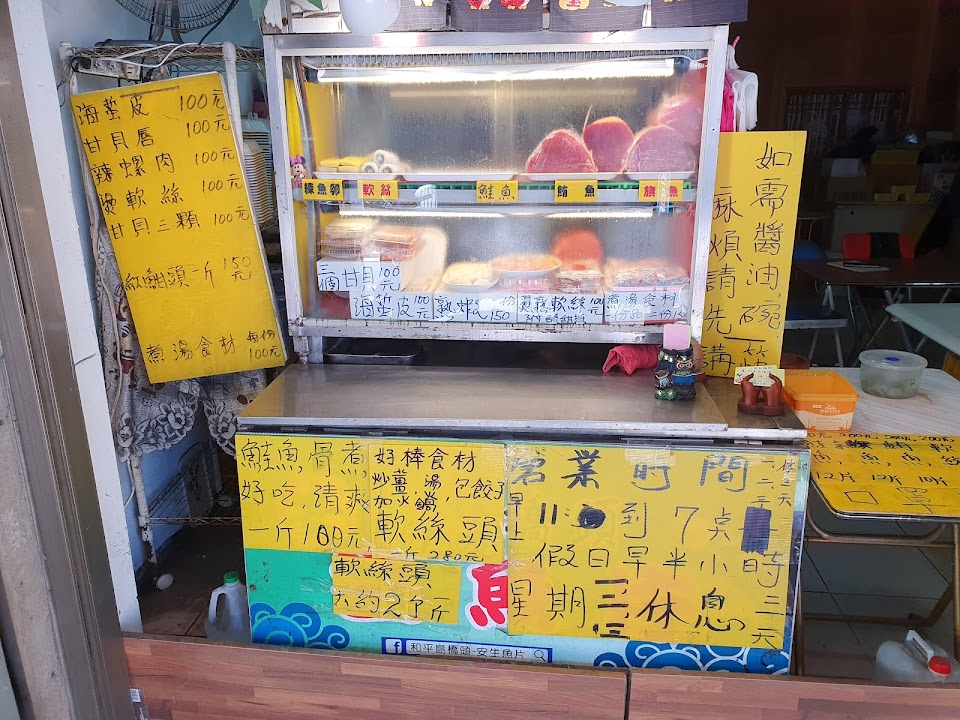 海蜇皮 100元
甘貝唇 100元
辣螺肉 100元
燙軟絲 100元
甘貝三顆 100元
紅魽頭一斤 150元
煮湯食材 每份100元
鮭魚
鮪魚
旗魚
軟絲
三個甘貝 100元
海蜇皮 100元
煮湯食材
如需醬油,碗
麻煩請先講
鮭魚骨煮
好吃,清爽
一斤100元
好棒食材
炒薑,湯,包餃子
加火鍋
軟絲頭
一斤280元
軟絲頭
大約2个斤
營業時間
早上11:
到7点
假日早半小時
星期二
休息
三天
魚
和平島橋頭-安生魚片
12片 12片 10片